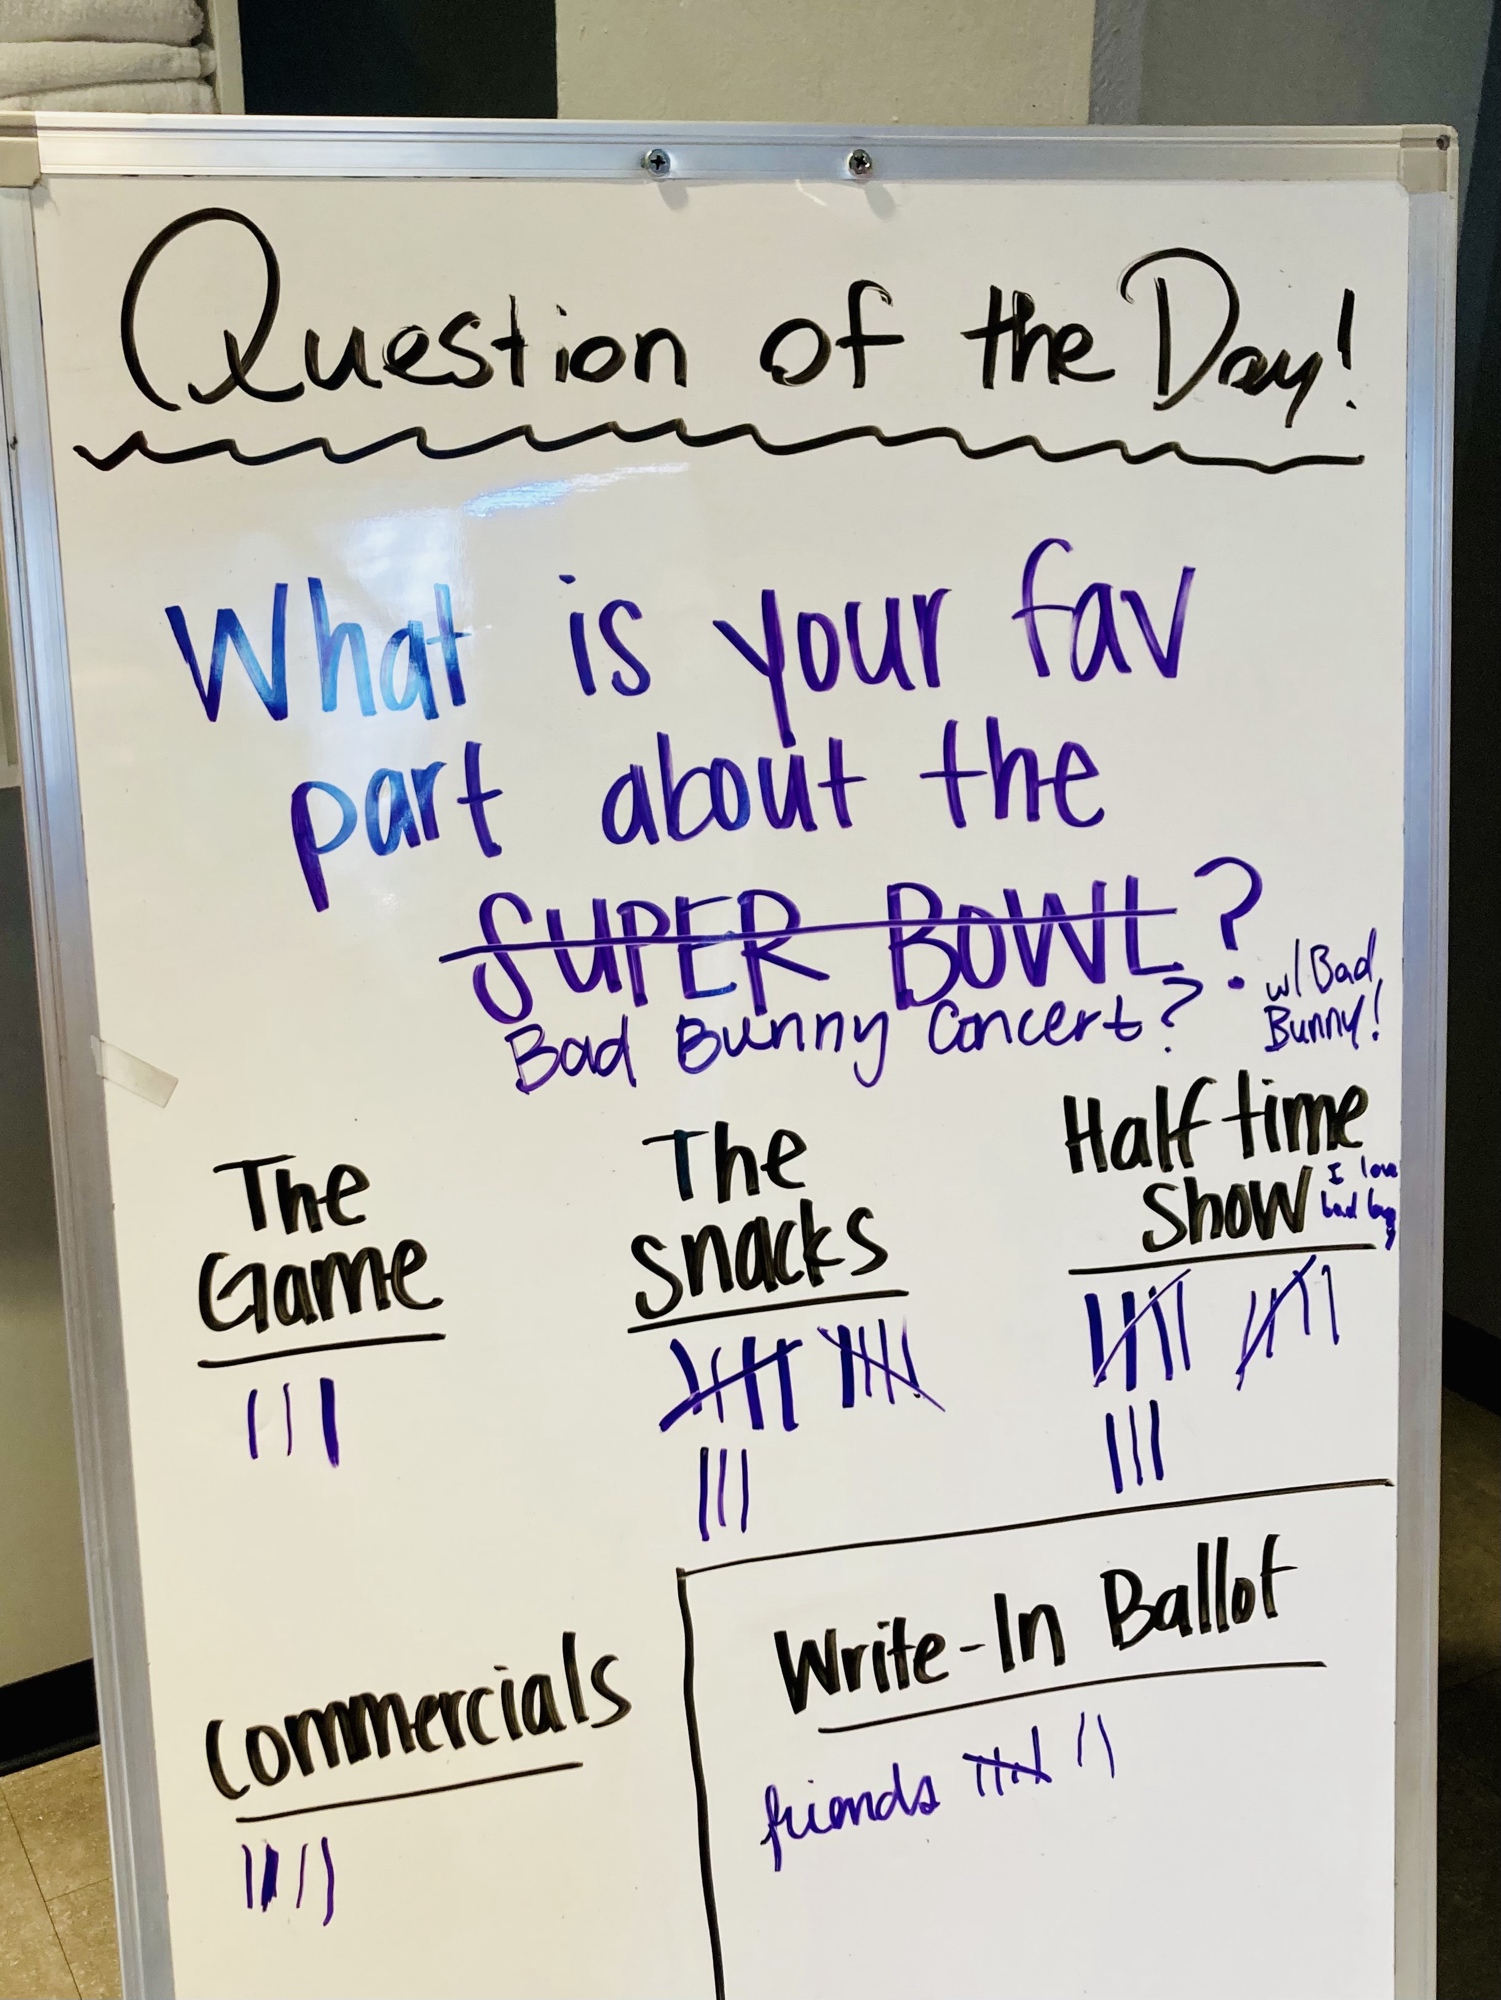 Question of the Day!
What is your fav
part about the
SUPER BOWL?
Bad Bunny Concert?
w/ Bad
Bunny!
The
Game
The
snacks
Half time
Show
I love
bad
Commercials
Write-In Ballot
friends